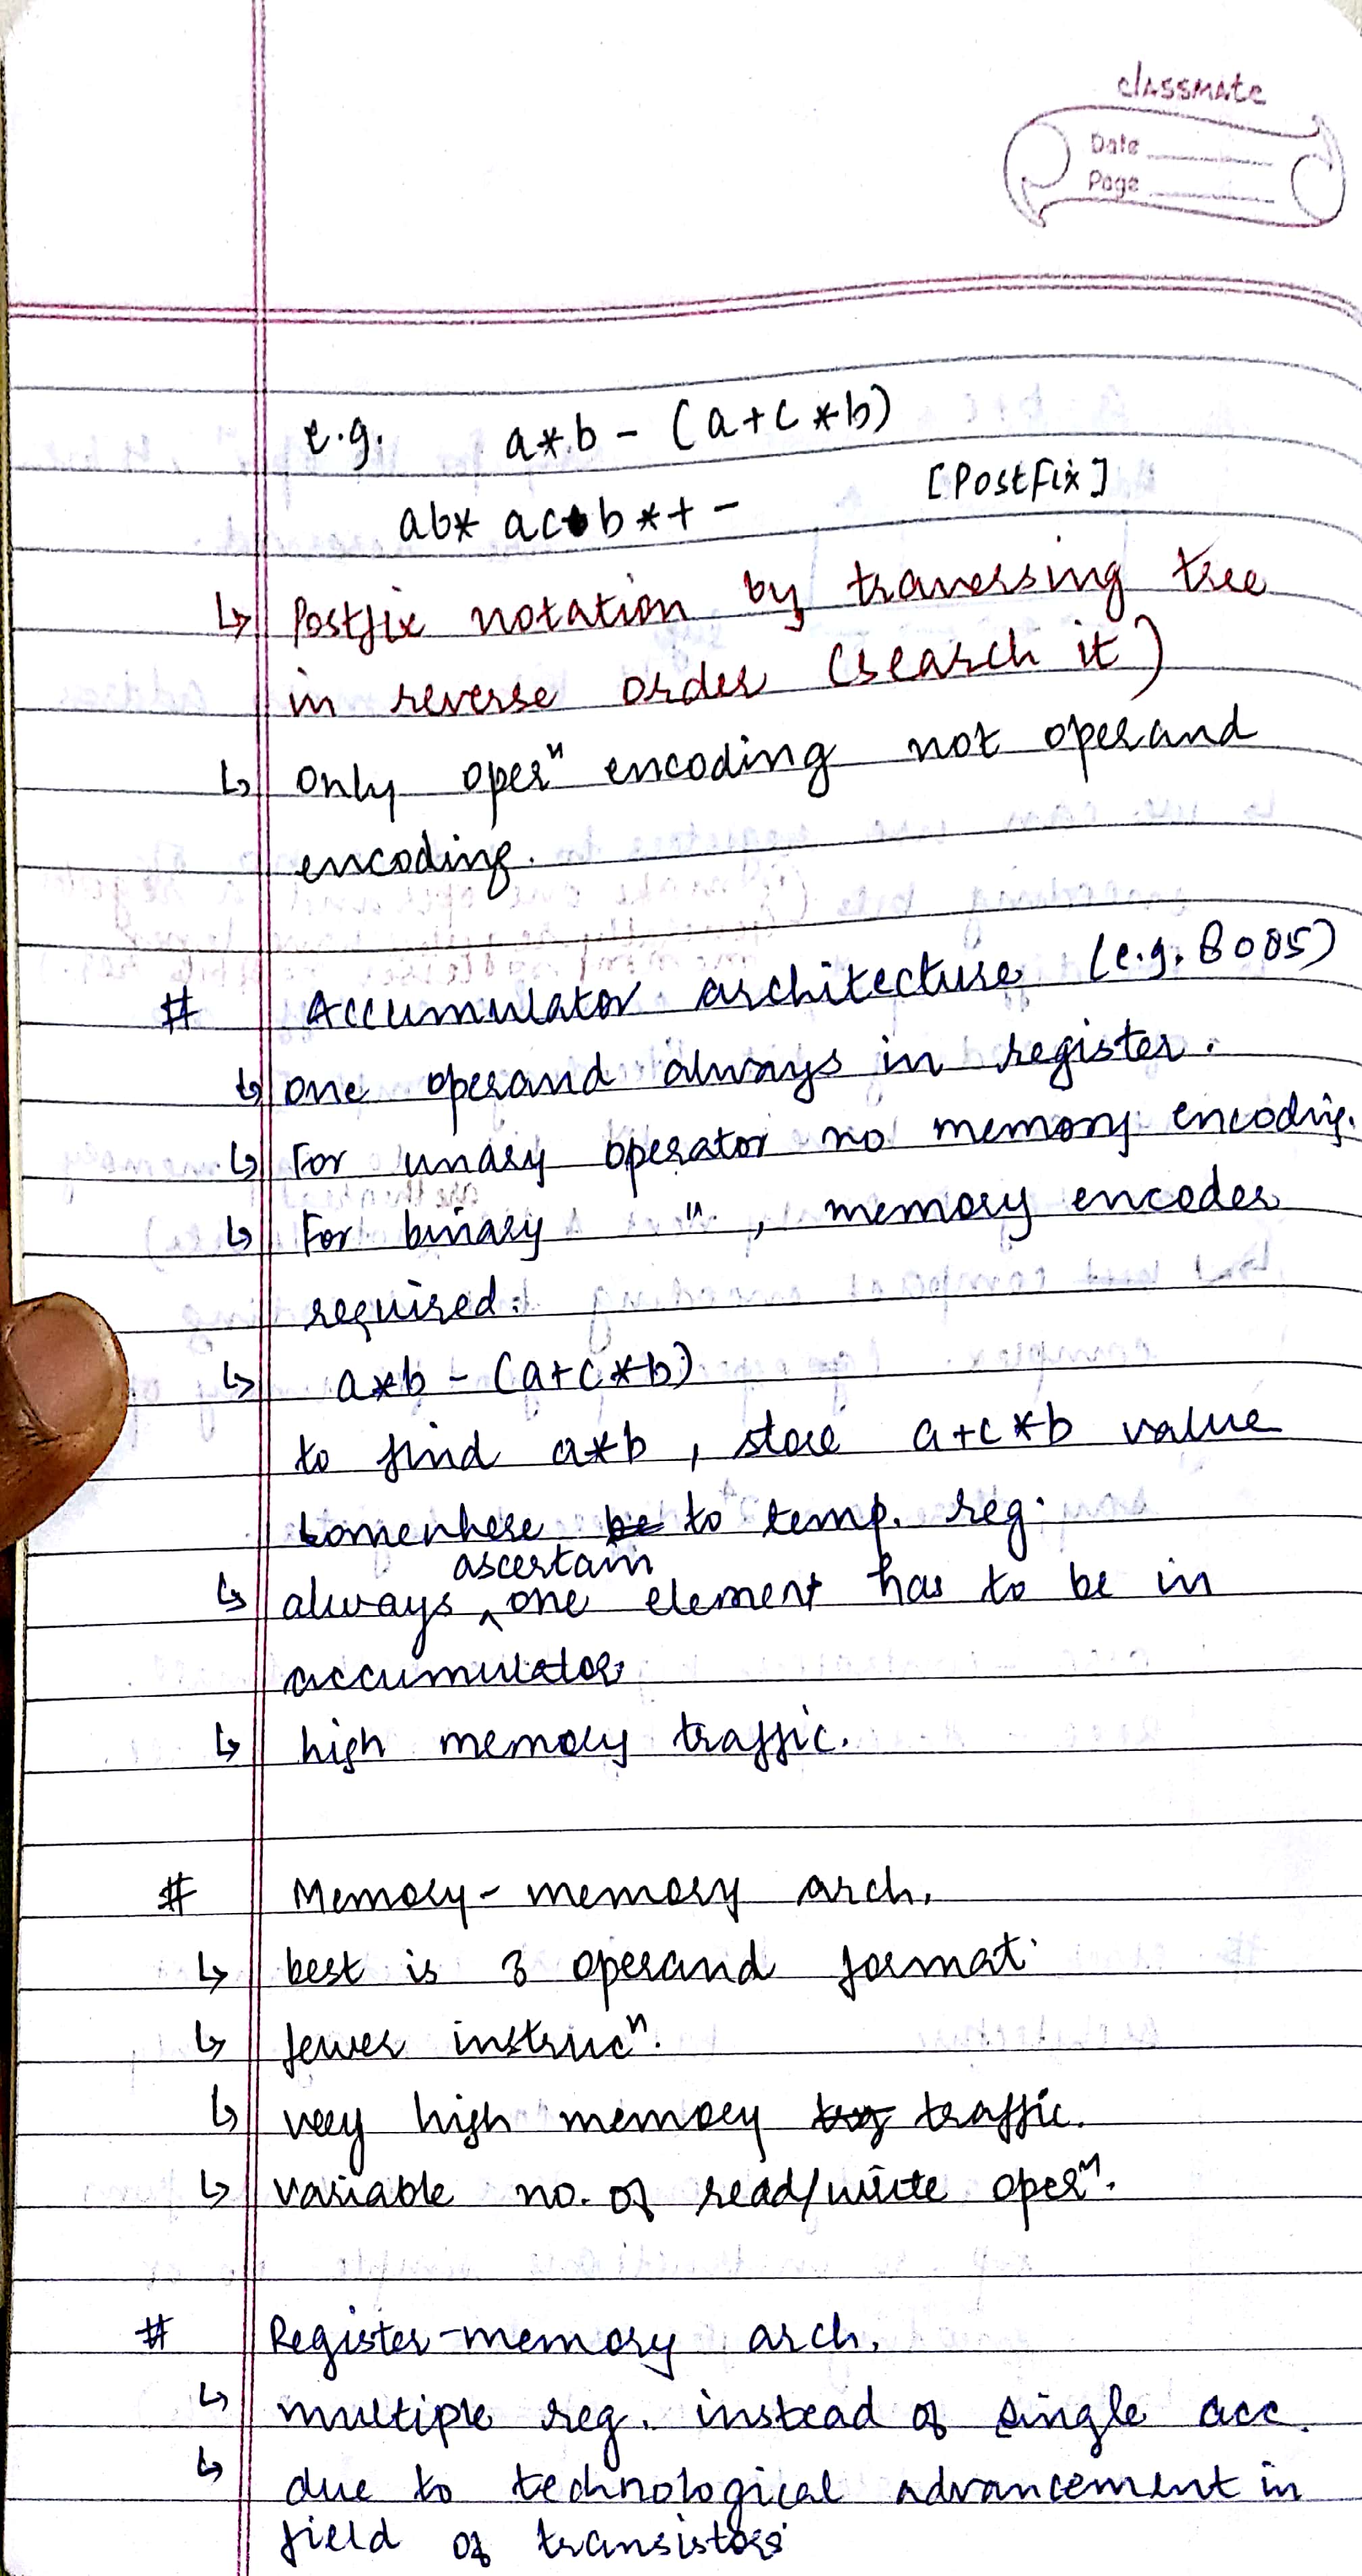 classmate
Date
Page
e.g. a*b - (a+c*b)
ab* acb*+- [Postfix]
↳ Postfix notation by traversing tree
in reverse order (search it)
↳ only operⁿ encoding not operand
encoding.
# Accumulator architecture (e.g. 8085)
↳ one operand always in register.
↳ For unary operator no memory encoding.
↳ For binary ", memory encodes
required.
↳ a*b - (a+c*b)
to find a*b, store a+c*b value
somewhere to temp. reg.
ascertain
↳ always ^ one element has to be in
accumulator
↳ high memory traffic.
# Memory-memory arch.
↳ best is 3 operand format.
↳ fewer instrucⁿ.
↳ very high memory traffic.
↳ variable no. of read/write operⁿ.
# Register-memory arch.
↳ multiple reg. instead of single acc.
↳ due to technological advancement in
field of transistors